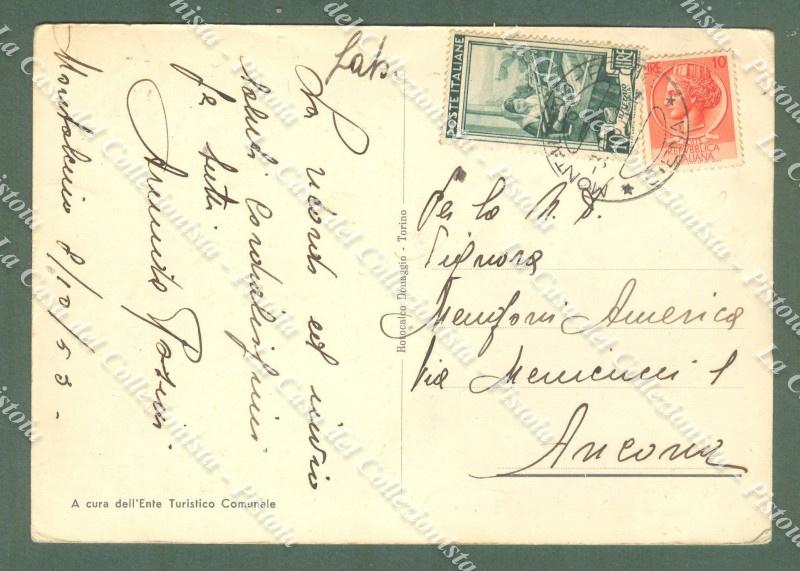 Montalcino 8/10/53 -
La ricordo ed invio
saluti cordialissimi
per tutti
POSTE ITALIANE
LIRE
LIRE 10
REPUBBLICA
ITALIANA
MONTALCINO
SIENA
Per la N. D.
Signora
Menfoni America
Via Menicucci 1
Ancona
Rotocalco Dönaggio - Torino
A cura dell'Ente Turistico Comunale
La Casa del Collezionista - Pistoia